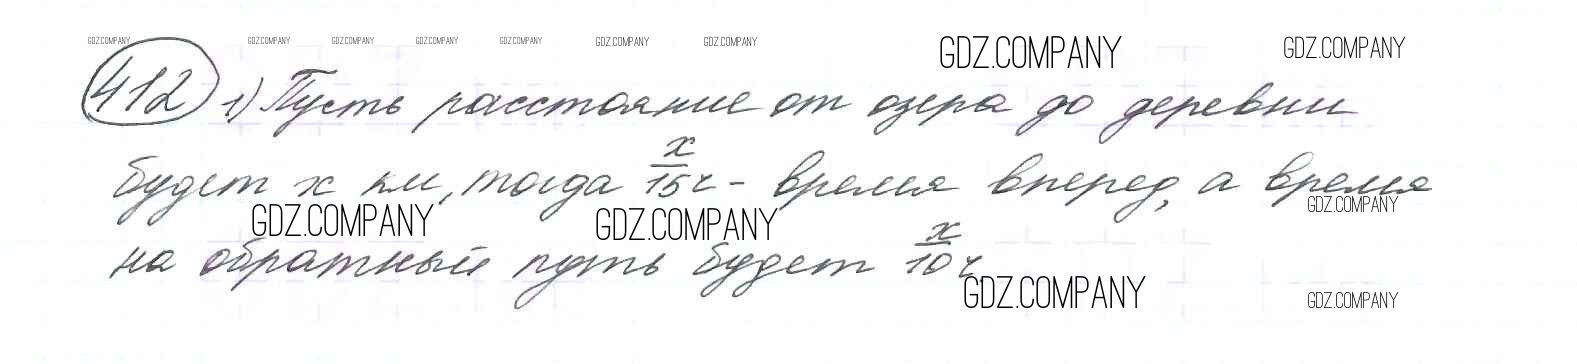 GDZ.COMPANY GDZ.COMPANY GDZ.COMPANY GDZ.COMPANY GDZ.COMPANY GDZ.COMPANY GDZ.COMPANY GDZ.COMPANY GDZ.COMPANY
412 1) Пусть расстояние от озера до деревни
будет x км, тогда x/15 ч - время вперед, а время
GDZ.COMPANY GDZ.COMPANY GDZ.COMPANY
на обратный путь будет x/10 ч
GDZ.COMPANY GDZ.COMPANY